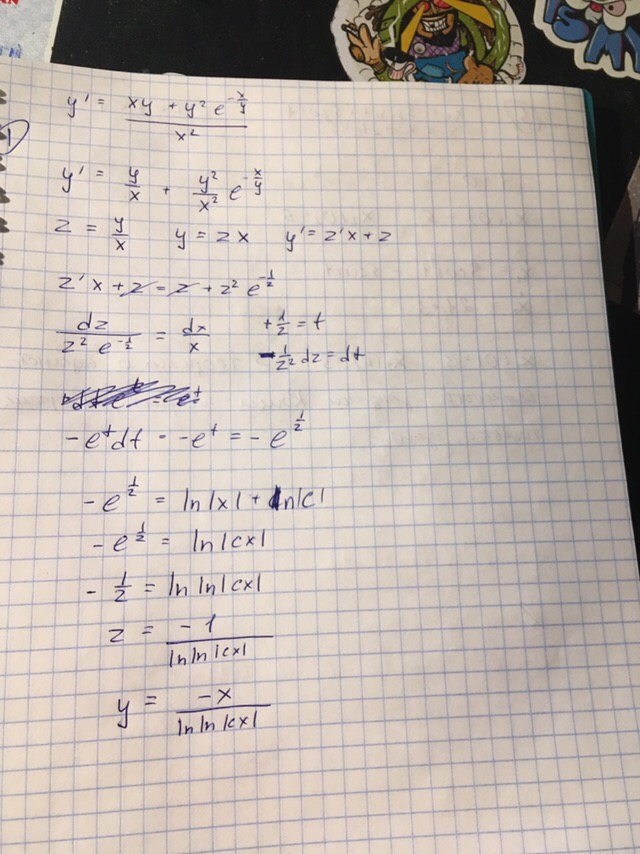 y' = (xy + y² e^(-x/y)) / x²
1
y' = y/x + y²/x² e^(-x/y)
z = y/x y = zx y' = z'x + z
z'x + z = z + z² e^(-1/z)
dz / (z² e^(-1/z)) = dx/x +1/z = t
-1/z² dz = dt
-e^t dt = -e^t = -e^(1/z)
-e^(1/z) = ln|x| + ln|c|
-e^(1/z) = ln|cx|
-1/z = ln ln|cx|
z = -1 / (ln ln|cx|)
y = -x / (ln ln|cx|)